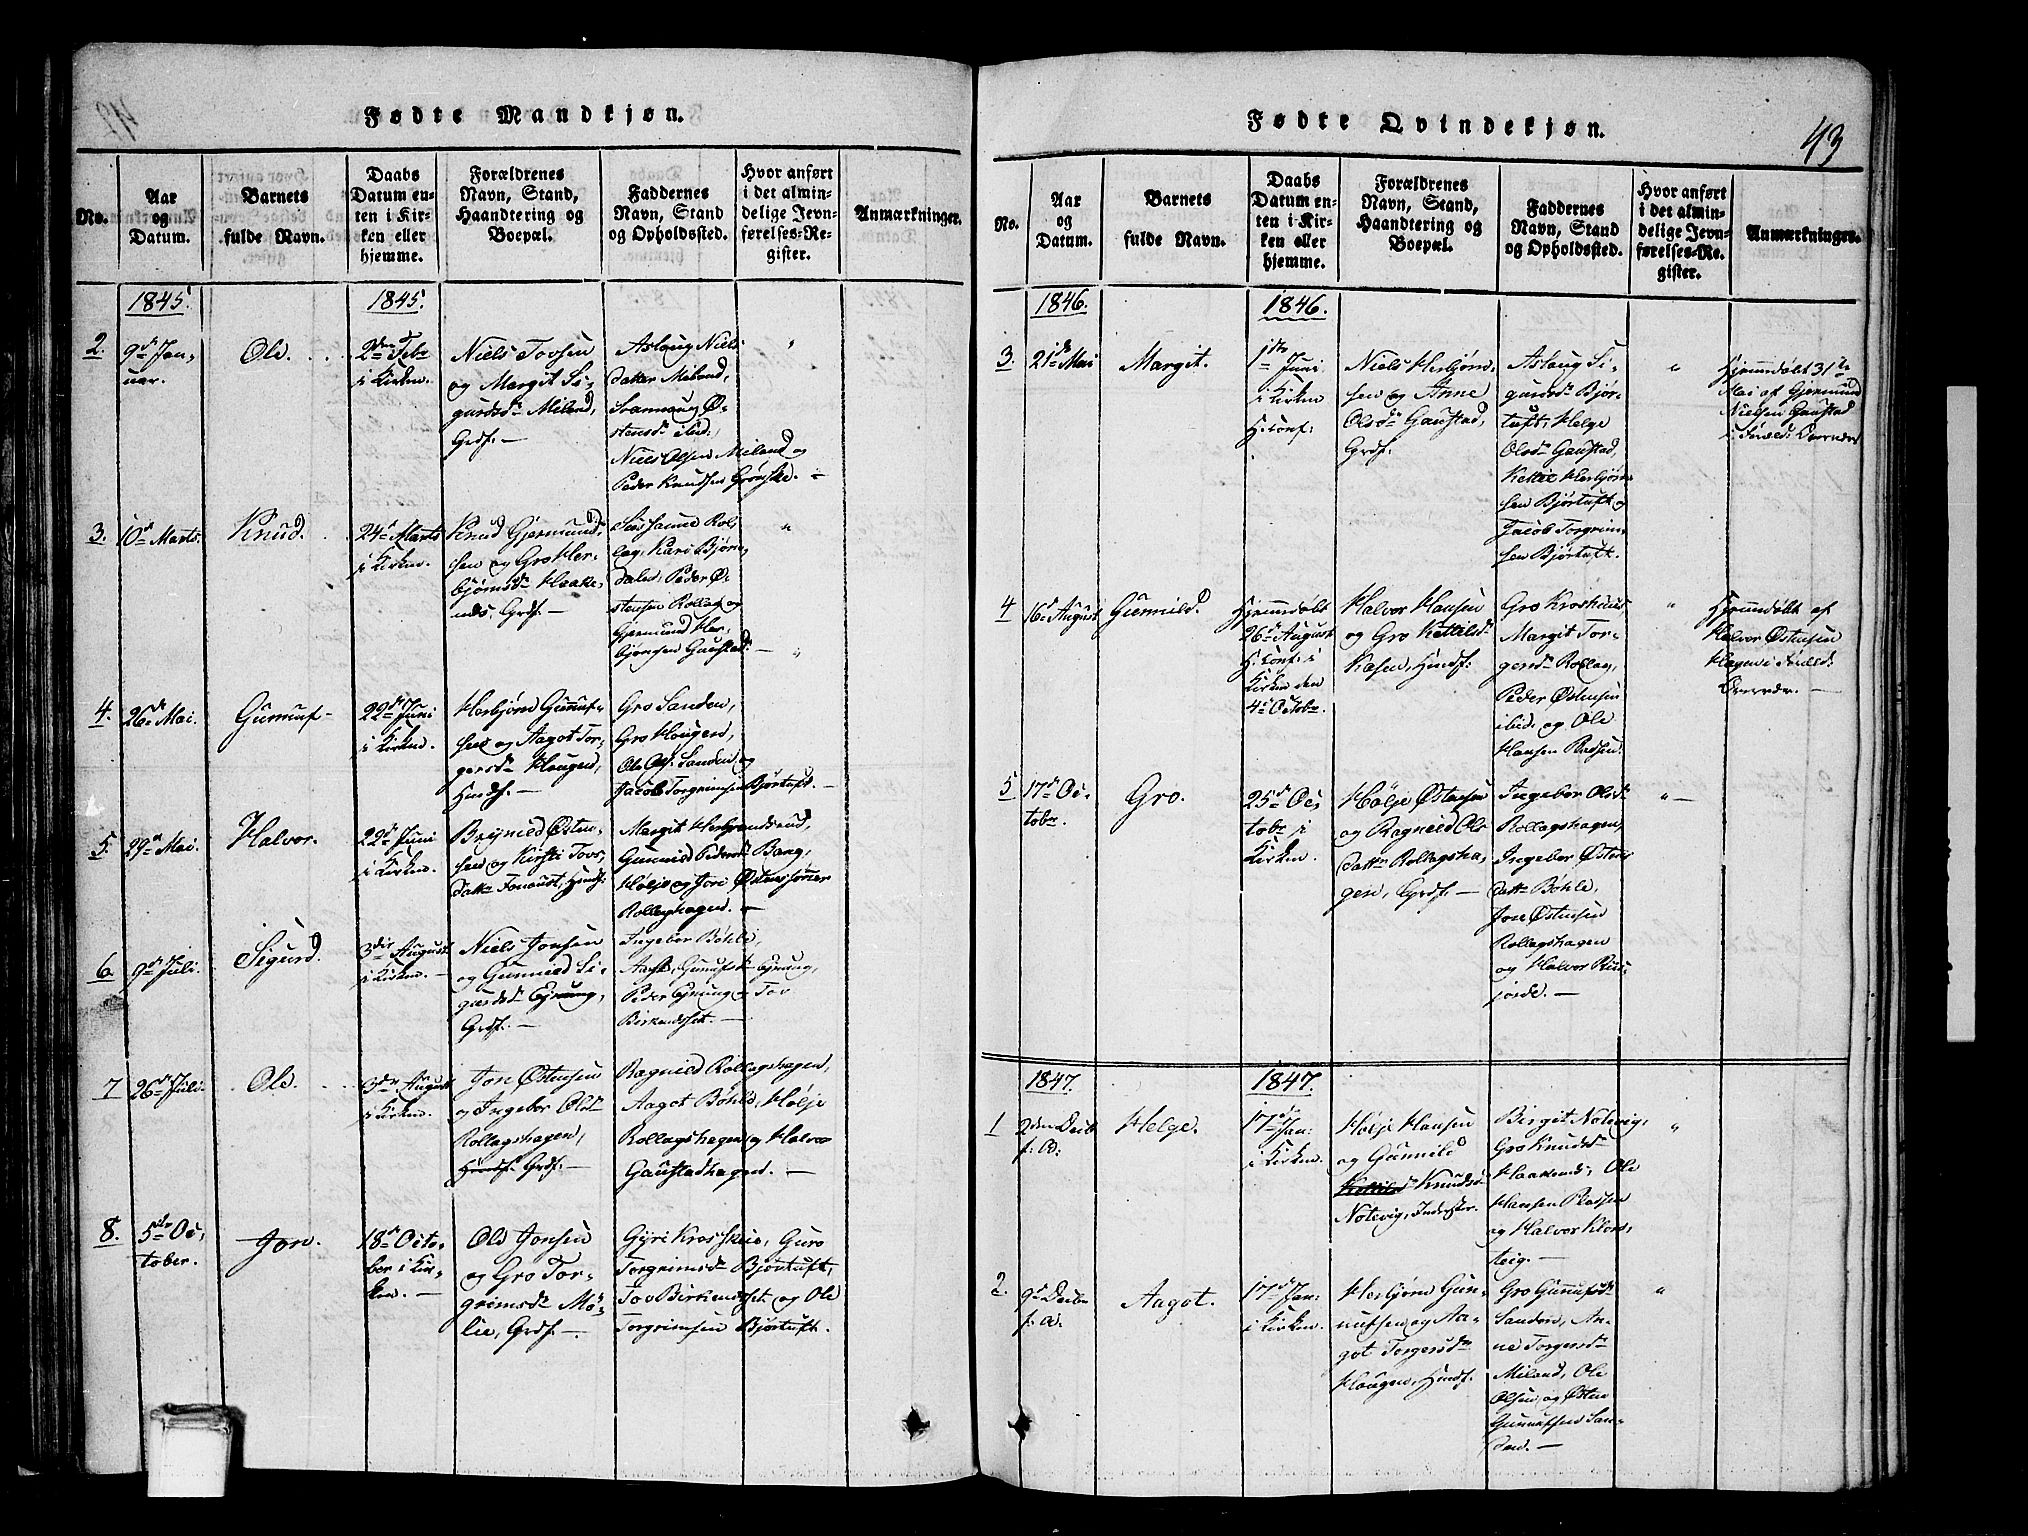 Fødte Mandkjøn.
No.
Aar
og
Datum.
Barnets
fulde Navn.
Daabs
Datum en-
ten i Kir-
ken eller
hjemme.
Forældrenes
Navn, Stand,
Haandtering og
Boepæl.
Faddernes
Navn, Stand
og Opholdssted.
Hvor anført
i det almin-
delige Jevn-
førelses-Re-
gister.
Anmærkninger.
1845.
1845.
2.
9de Jan-
uar.
Ole.
2den Febr
i Kirken.
Niels Tovsen
og Margit Si-
gurdsdr Miland,
Grdf. —
Aslaug Niels-
datter Miland,
Svannaug Ø-
stensdr ibid.,
Niels Olsen Miland og
Peder Knudsen Grønske. —
"
3.
10de Marts.
Knud.
24de Marts
i Kirken.
Knud Gjermund-
sen og Gro Her-
bjørnsdr Haake-
næs, Grdf. —
Susanne Rol-
lag, Kari Bjørn-
dalen, Peder Ø-
stensen Rollag og
Gjermund Her-
bjørnsen Gaustad. —
"
4.
26de Mai.
Gunnuf
22de Juni
i Kirken.
Herbjørn Gunnuf-
sen og Aagot Tor-
gersdr Hougen,
Hmdf. —
Gro Sanden,
Gro Hougen,
Ole Ols. Sanden og
Jacob Torgrimsen Bjørtuft. —
"
5.
29de Mai.
Halvor.
22de Juni
i Kirken.
Brynild Østen-
sen og Kirsti Tovs-
datter Fonnust, Hmdf.
Margit Herbrandsrud,
Gunnild Pedersdr Bang,
Hølje og Jon Østenssønner
Rollagshagen. —
6
9de Juli.
Sigurd.
3die August
i Kirken. —
Niels Jonsen
og Gunnild Si-
gurdsdr Ejnung,
Grdf. —
Ingebor Bøhle,
Aaste Gunufsdr Ejnung,
Peder Ejnung og Tov
Birkendset. —
7
26de Juli.
Ole.
3die August
i Kirken.
Jon Østensen
og Ingebor Olsdr
Rollagshagen,
Hmdf. Grdf. —
Ragnild Rollagshagen,
Aagot Bøhle, Hølje
Rollagshagen og Halvor
Gaustadhagen. —
8.
5te Oc-
tober.
Jon.
18de Octo-
ber i Kir-
ken. —
Ole Jonsen
og Gro Tor-
grimsdr Mø-
lie, Grdf. —
Gyri Krosskeie, Guro
Torgrimsdr Bjørtuft,
Tov Birkendset og Ole
Torgrimsen Bjørtuft.
Fødte Qvindekjøn.
43
No.
Aar
og
Datum.
Barnets
fulde Navn.
Daabs
Datum en-
ten i Kir-
ken eller
hjemme.
Forældrenes
Navn, Stand,
Haandtering og
Boepæl.
Faddernes
Navn, Stand
og Opholdssted.
Hvor anført
i det almin-
delige Jevn-
førelses-Re-
gister.
Anmærkninger.
1846.
1846.
3.
21de Mai
Margit.
1ste Juni
i Kirken
H: Conf:
Niels Herbjørn-
sen og Anne
Olsdr Gaustad,
Grdf.
Aslaug Si-
gurdsdr Bjør-
tuft, Helge
Olsdr Gaustad,
Kettil Herbjørn-
sen Bjørtuft og
Jacob Torgrim-
sen Bjørtuft.
"
Hjemmedøbt 31te
Mai af Gjermund
Nielsen Gaustad
i Foræld: Overvær
4
16de August
Gunnild.
Hjemmedøbt
26de August
H: Conf: i
Kirken den
4de Octobr.
Halvor Hansen
og Gro Kettilsdr
Kasen, Hmdf.
Gro Kroshuus,
Margit Tor-
gersdr Rollag,
Peder Østensen
ibid. og Ole
Hansen
"
Hjemmedøbt af
Halvor Østensen
Hagen i Foræld:
Overvær. —
5
17de Oc-
tobr.
Gro.
25de Oc-
tobr i
Kirken.
Hølje Østensen
og Ragnild Ols-
datter Rollagsha-
gen, Grdf. —
Ingebor Olsdr
Rollagshagen,
Ingebor Østens-
datter Bøhle,
Jon Østensen
Rollagshagen
og Halvor Rui-
jorde. —
" —
1847.
1847.
1
2den Decbr
f: A:
Helge.
17de Jan:
i Kirken.
Hølje Hansen
og Gunnild
Kettilsdr Knudsdr
Notevig, Inderster.
Birgit Notevig,
Gro Knudsdr
Haakenæs, Ole
Hansen Plassen
og Halvor Klons-
teig. —
"
2.
9de Decbr
f: A:
Aagot.
17de Jan:
i Kirken.
Herbjørn Gun-
nufsen og Aa-
got Torgersdr
Hougen, Hmdf.
Gro Gunnufsdr
Sanden, An-
ne Torgersdr
Miland, Ole
Olsen og Østen
Gunnufsen San-
den. —
"